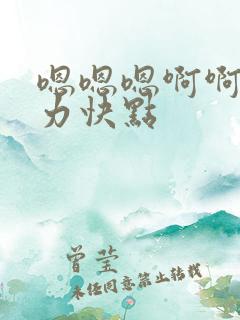 嗯嗯嗯啊啊
力快點
曾莹
未经同意禁止转载